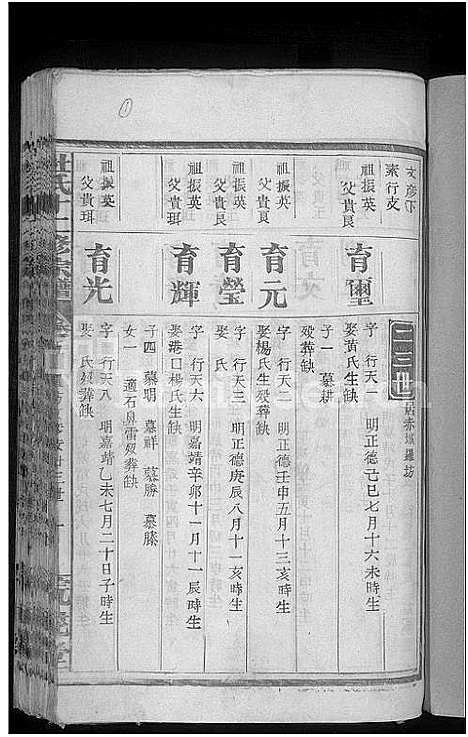 文彥下
素行支
二三世
居赤城羅坊
祖振英
父貴艮
育璽
字 行天一 明正德己巳七月十六未時生
娶黃氏生缺
歿葬缺
子一 慕耕
祖振英
父貴艮
育元
字 行天二 明正德壬申五月十三亥時生
娶楊氏生歿葬缺
育瑩
字 行天三 明正德庚辰八月十一亥時生
娶 氏
祖振英
父貴珥
育輝
字 行天六 明嘉靖辛卯十一月十一辰時生
娶港口楊氏生缺
子四 慕明 慕祥 慕勝 慕滕
女一 適石鼻雷歿葬缺
祖振英
父貴珥
育光
字 行天八 明嘉靖乙未七月二十日子時生
娶 氏歿葬缺